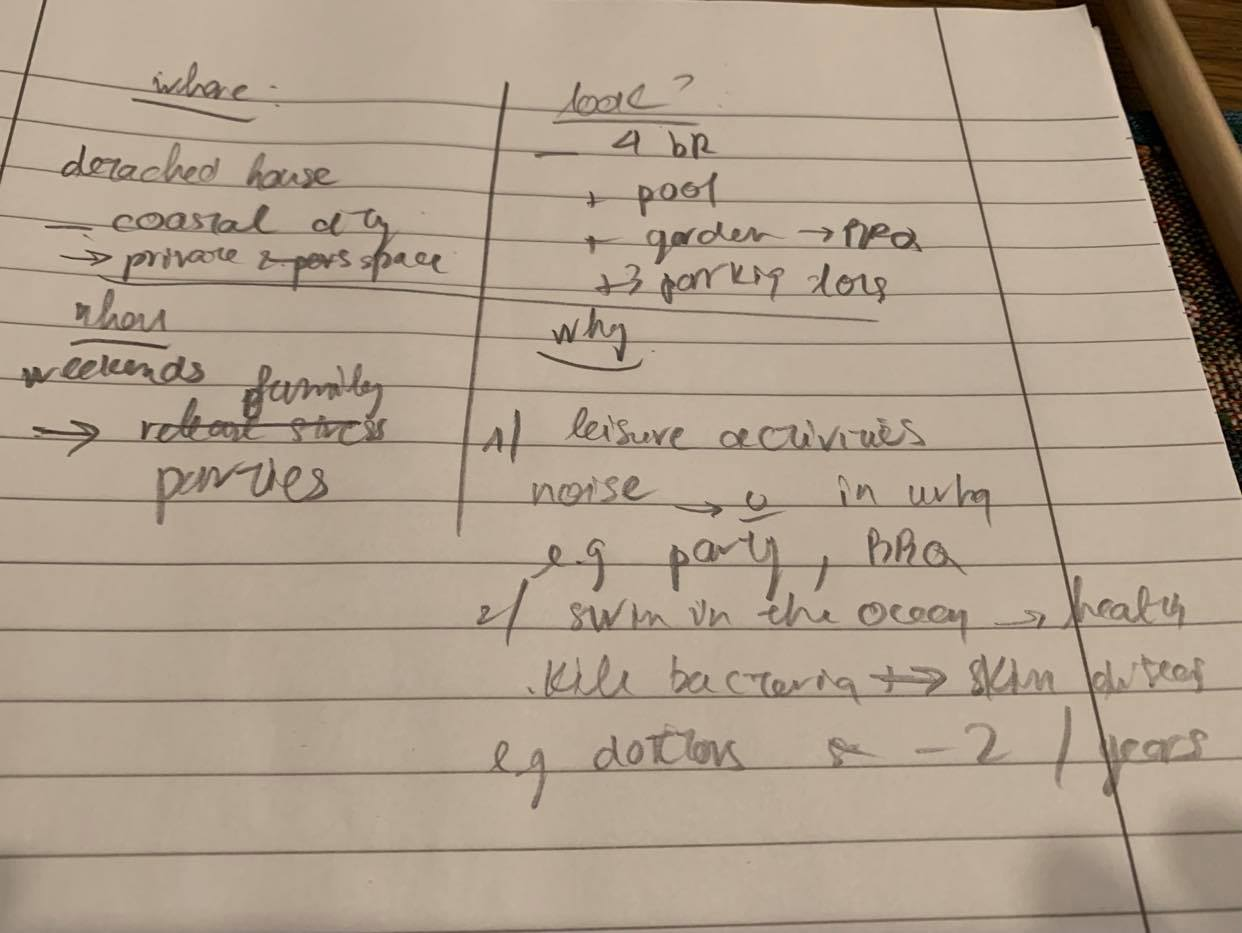 where:
detached house
- coastal city
→ private & pers space
when
weekends family
→ release stress
parties
look?
- 4 bR
+ pool
+ garden → BBQ
+3 parking slots
why
1/ leisure activities
noise → 0 in urba
e.g party, BBQ
2/ swim in the ocean → health
. kill bacteria +→ skin diseas
eg doctors - 2 / years